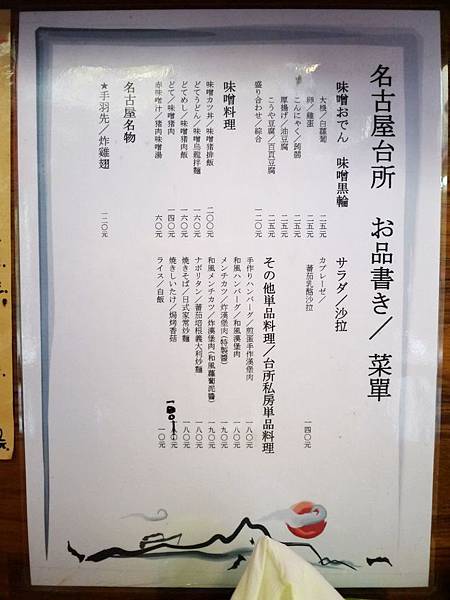 名古屋台所 お品書き／菜單
味噌おでん 味噌黒輪
大根／白蘿蔔 二五元
卵／雞蛋 二五元
こんにゃく／蒟蒻 二五元
厚揚げ／油豆腐 二五元
こうや豆腐／百頁豆腐 二五元
盛り合わせ／綜合 一二〇元
味噌料理
味噌カツ丼／味噌猪排飯 二〇〇元
どてうどん／味噌烏龍拌麵 一六〇元
どてめし／味噌猪肉飯 一六〇元
どて／味噌猪肉 一四〇元
赤味噌汁／猪肉味噌湯 六〇元
名古屋名物
★手羽先／炸雞翅 一二〇元
サラダ／沙拉
カプレーゼ／
蕃茄乳酪沙拉 一四〇元
その他単品料理／台所私房単品料理
手作りハンバーグ／煎蛋手作漢堡肉 一八〇元
和風ハンバーグ／和風漢堡肉 一八〇元
メンチカツ／炸漢堡肉(特製醬) 一九〇元
和風メンチカツ／炸漢堡肉(和風蘿蔔泥醬) 一九〇元
ナポリタン／蕃茄培根義大利炒麵 一八〇元
焼きそば／日式家常炒麵 一八〇元
焼きしいたけ／焗烤香菇
ライス／白飯 一〇元